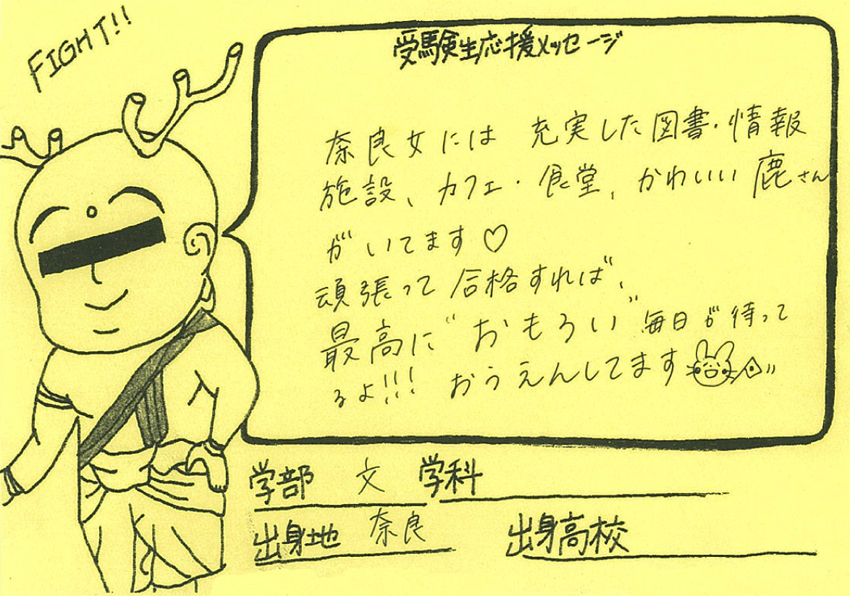 FIGHT!!
受験生応援メッセージ
奈良女には 充実した図書・情報
施設、カフェ・食堂、かわいい鹿さん
がいてます♡
頑張って合格すれば、
最高に"おもろい"毎日が待って
るよ!!! おうえんしてます
学部 文 学科
出身地 奈良 出身高校